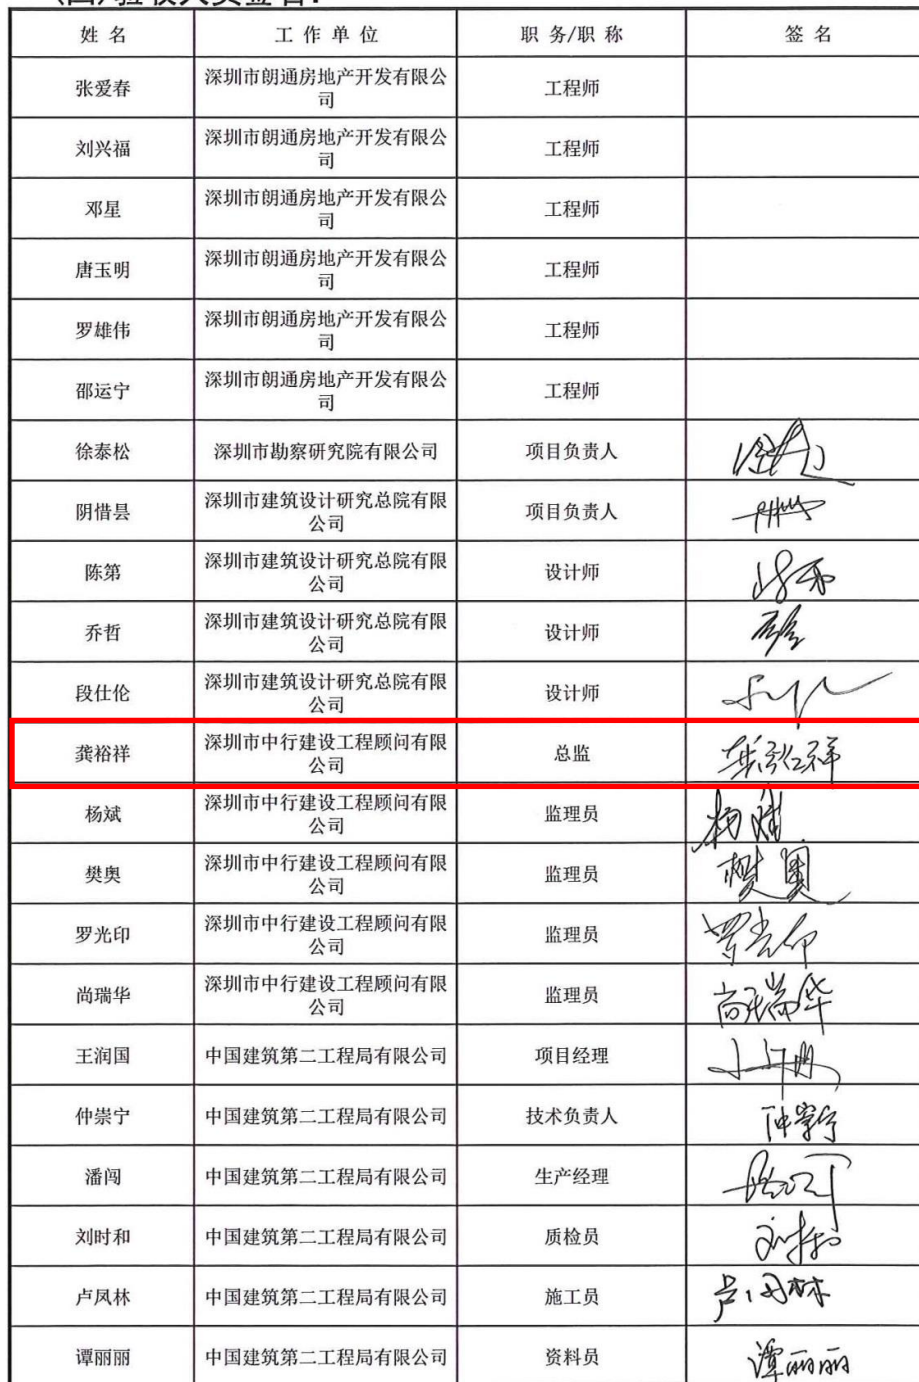 姓 名 工 作 单 位 职 务/职 称 签 名
张爱春 深圳市朗通房地产开发有限公 工程师
司
刘兴福 深圳市朗通房地产开发有限公 工程师
司
邓星 深圳市朗通房地产开发有限公 工程师
司
唐玉明 深圳市朗通房地产开发有限公 工程师
司
罗雄伟 深圳市朗通房地产开发有限公 工程师
司
邵运宁 深圳市朗通房地产开发有限公 工程师
司
徐泰松 深圳市勘察研究院有限公司 项目负责人
阴惜昙 深圳市建筑设计研究总院有限 项目负责人
公司
陈第 深圳市建筑设计研究总院有限 设计师
公司
乔哲 深圳市建筑设计研究总院有限 设计师
公司
段仕伦 深圳市建筑设计研究总院有限 设计师
公司
龚裕祥 深圳市中行建设工程顾问有限 总监
公司
杨斌 深圳市中行建设工程顾问有限 监理员 杨斌
公司
樊奥 深圳市中行建设工程顾问有限 监理员 樊奥
公司
罗光印 深圳市中行建设工程顾问有限 监理员 罗光印
公司
尚瑞华 深圳市中行建设工程顾问有限 监理员 尚瑞华
公司
王润国 中国建筑第二工程局有限公司 项目经理
仲崇宁 中国建筑第二工程局有限公司 技术负责人 仲崇宁
潘闯 中国建筑第二工程局有限公司 生产经理
刘时和 中国建筑第二工程局有限公司 质检员
卢凤林 中国建筑第二工程局有限公司 施工员 卢凤林
谭丽丽 中国建筑第二工程局有限公司 资料员 谭丽丽